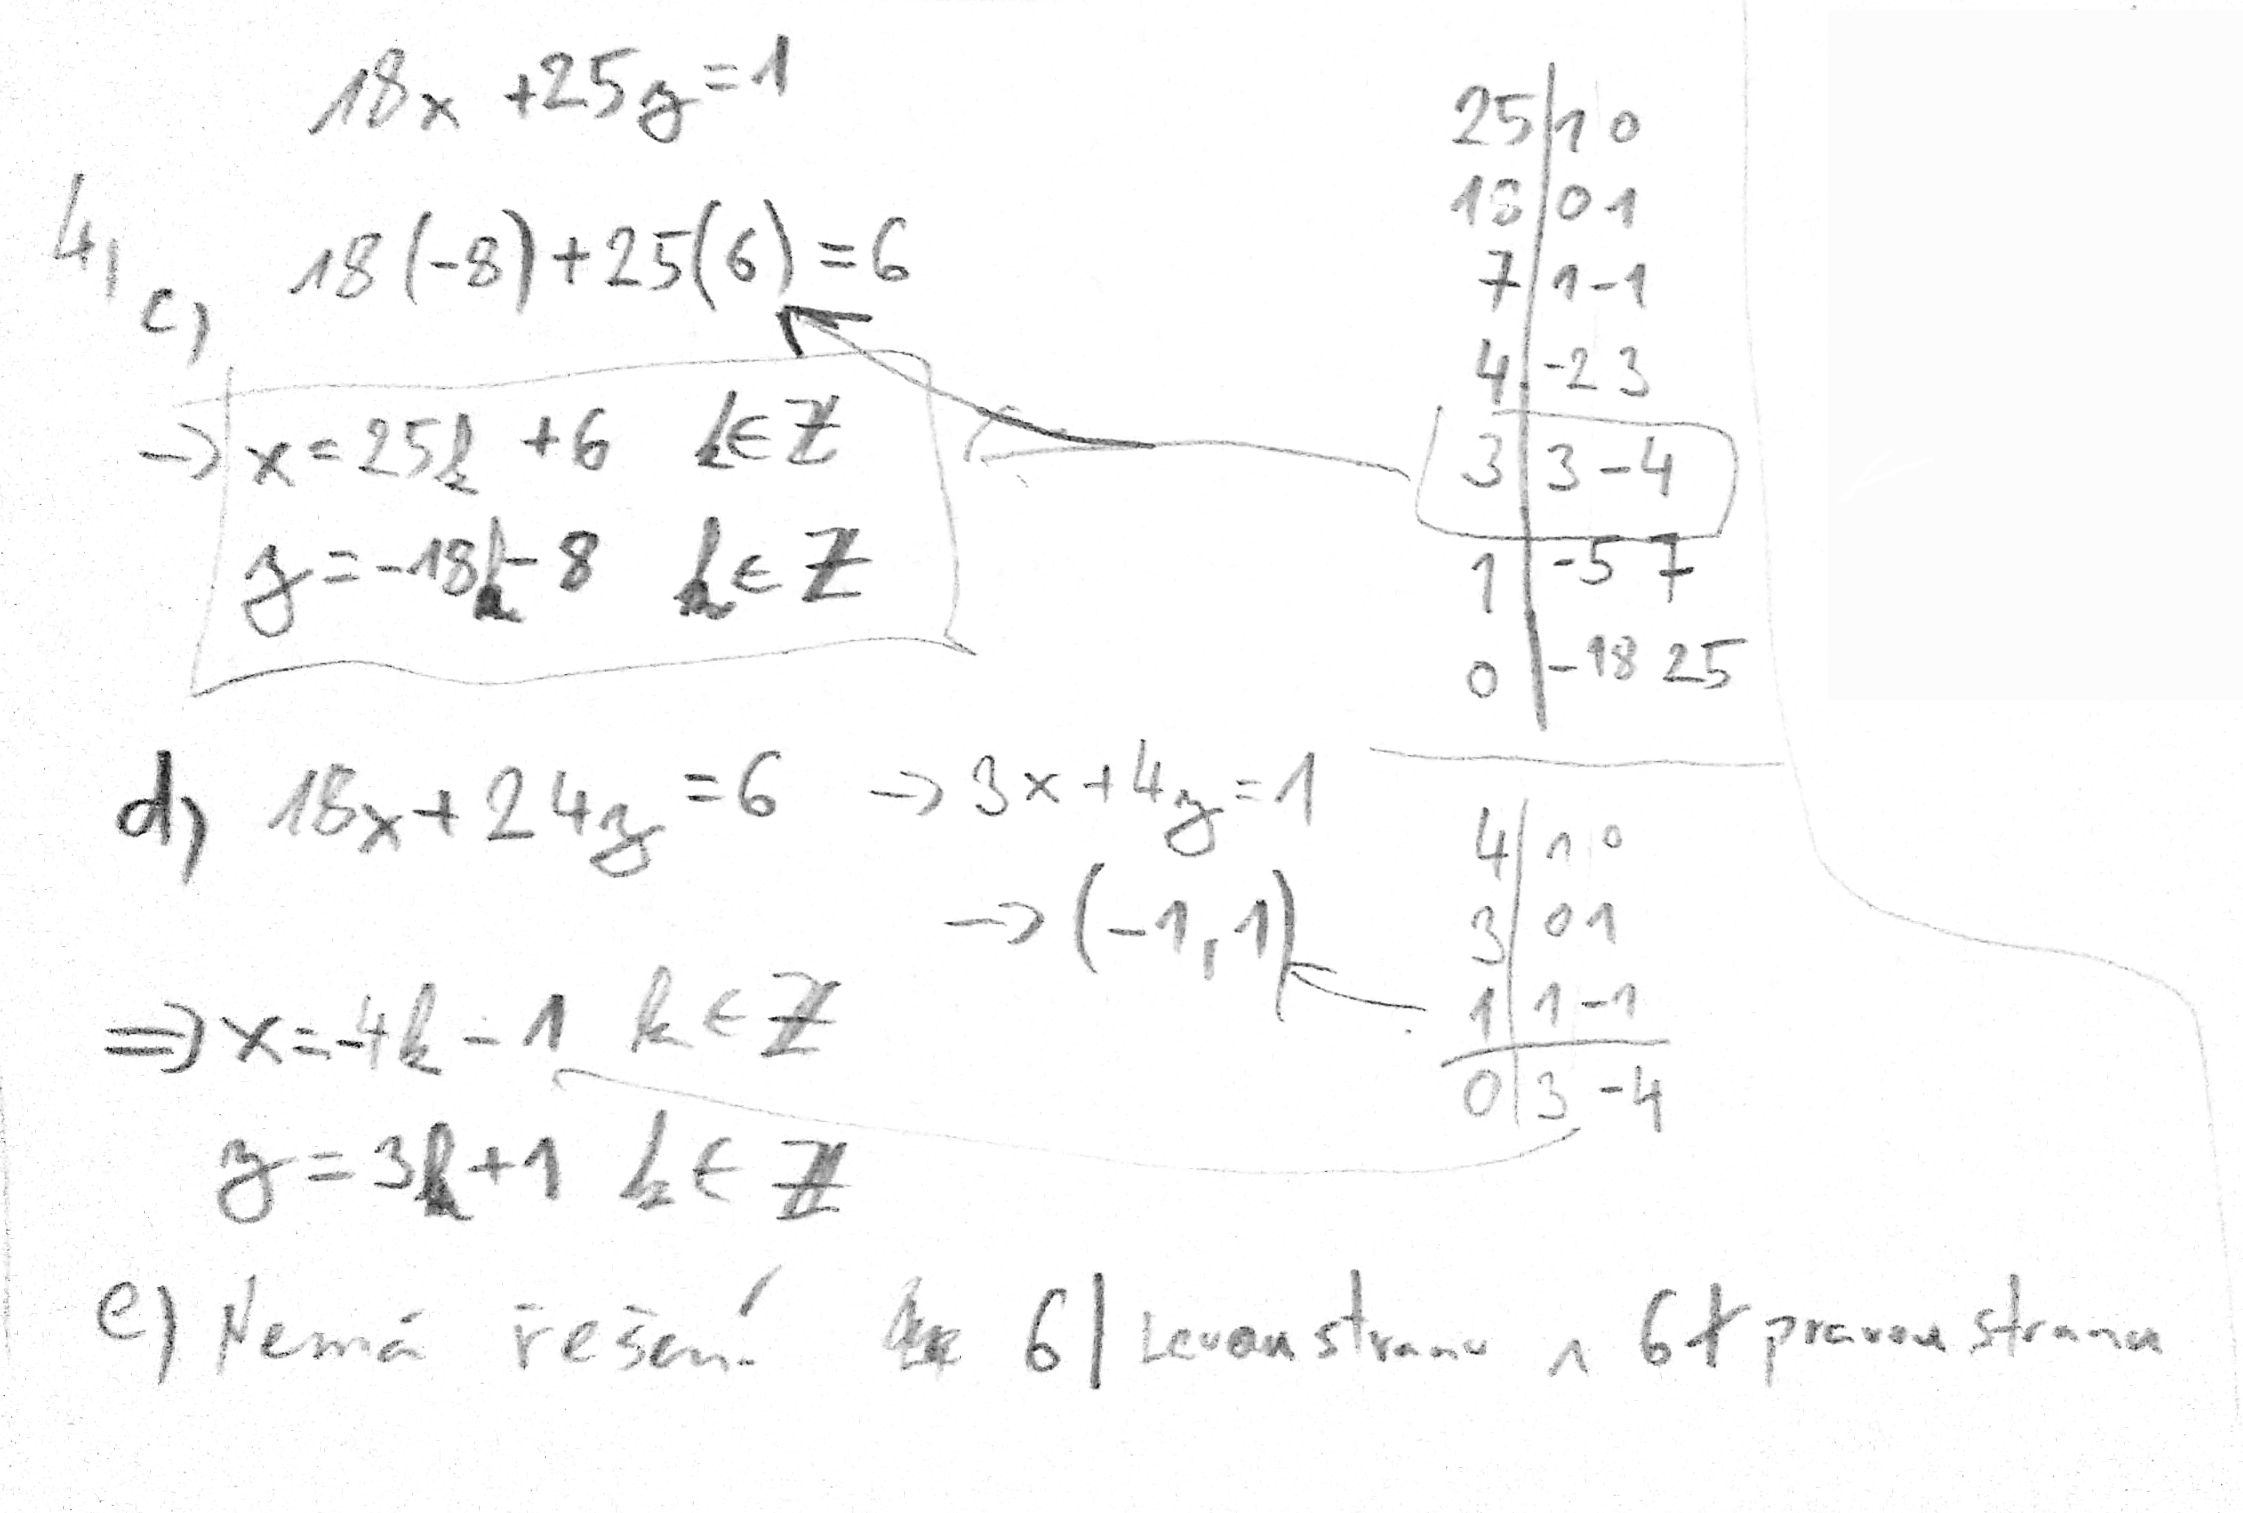 18x + 25y = 1
4, c) 18(-8) + 25(6) = 6
→ x = 25k + 6 k ∈ Z
y = -18k - 8 k ∈ Z
25 | 1 0
18 | 0 1
7 | 1 -1
4 | -2 3
3 | 3 -4
1 | -5 7
0 | -18 25
d) 18x + 24y = 6 → 3x + 4y = 1
→ (-1, 1)
⇒ x = -4k - 1 k ∈ Z
y = 3k + 1 k ∈ Z
4 | 1 0
3 | 0 1
1 | 1 -1
0 | 3 -4
e) Nemá řešení 6 | Levou stranu ∧ 6 ∤ pravou stranu